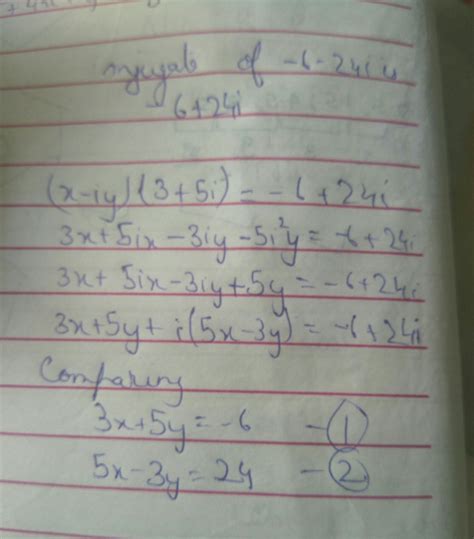 of -6-24i is
-6+24i
(x-iy)(3+5i)=-6+24i
3x+5ix-3iy-5i²y=-6+24i
3x+5ix-3iy+5y=-6+24i
3x+5y+i(5x-3y)=-6+24i
Comparing
3x+5y=-6 -①
5x-3y=24 -②